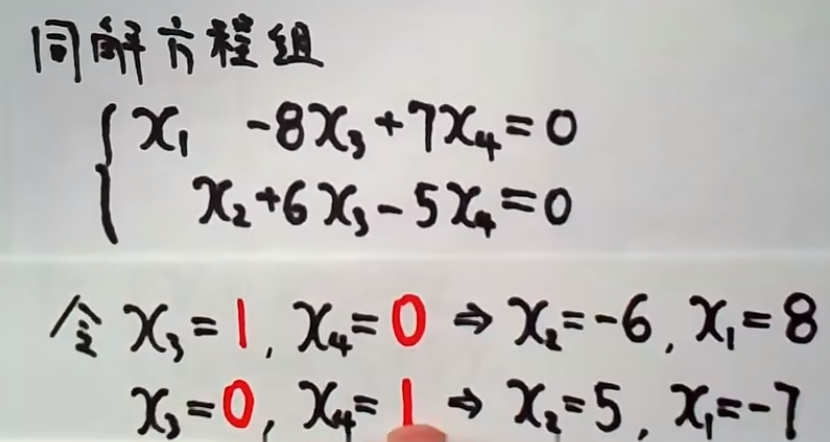 同解方程组
x₁ -8x₃+7x₄=0
x₂+6x₃-5x₄=0
令 x₃=1, x₄=0 ⇒ x₂=-6, x₁=8
x₃=0, x₄=1 ⇒ x₂=5, x₁=-7